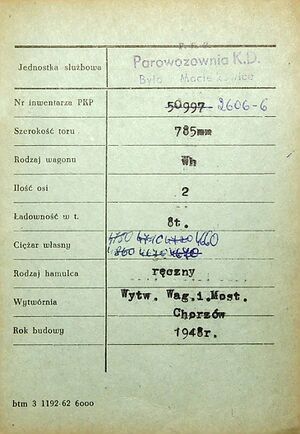 P.K.P.
Jednostka służbowa Parowozownia K.D.
Nr inwentarza PKP 50997 2606-6
Szerokość toru 785mm
Rodzaj wagonu Wh
Ilość osi 2
Ładowność w t. 8t.
4750 4710 4720 4660
Ciężar własny 4670
Rodzaj hamulca ręczny
Wytwórnia Wytw. Wag.i.Most.
Chorzów
Rok budowy 1948r.
btm 3 1192-62 6000